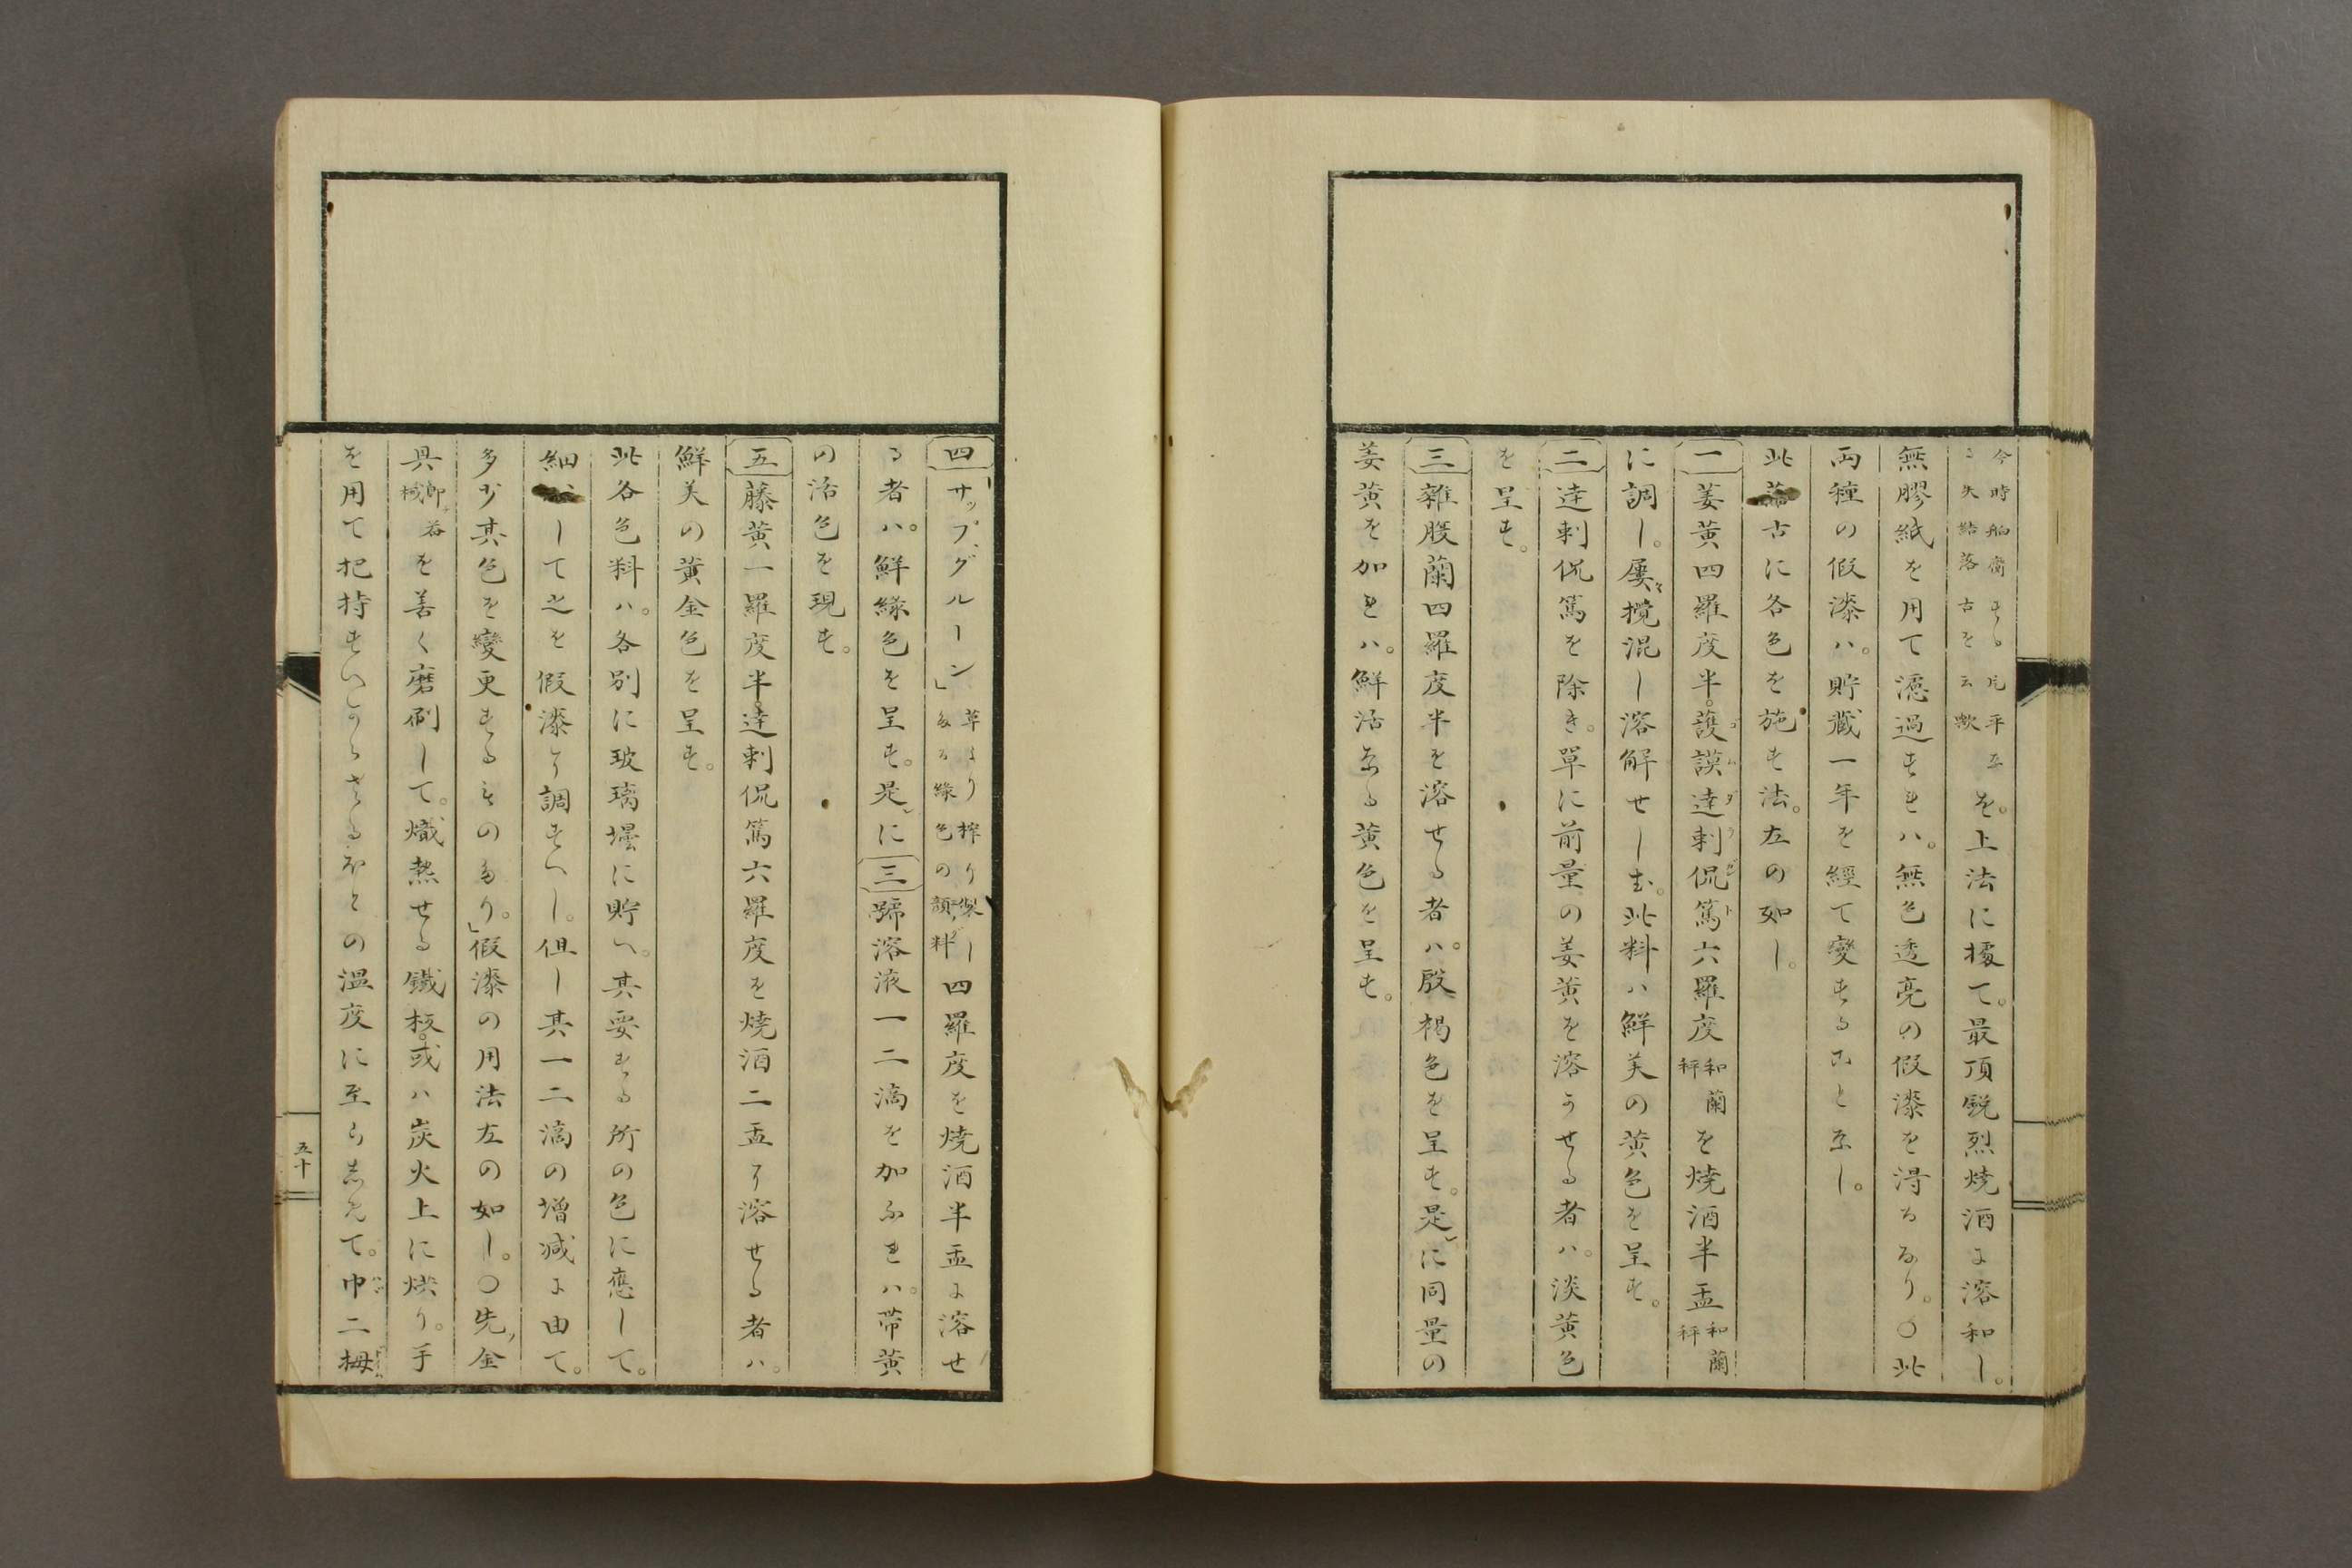 今時舶齎する片平なを。上法に據て。最頂鋭烈焼酒に溶和し。
失結落古を云歟
無膠紙を用て濾過すれハ。無色透亮の假漆を得るなり。○此
両種の假漆ハ。貯藏一年を經て變することなし。
此 古に各色を施す法。左の如し。
一 姜黄四羅度半。護謨達剌侃篤六羅度 和蘭秤 を焼酒半盂 和蘭秤
に調し。屡攪混し溶解せしむ。此料ハ鮮美の黄色を呈す。
二 達剌侃篤を除き。單に前量の姜黄を溶かせる者ハ。淡黄色
を呈す。
三 雜腹蘭四羅度半を溶せる者ハ。殷褐色を呈す。是に同量の
姜黄を加れハ。鮮活なる黄色を呈す。
四 サップグルーン 草より搾り製したる緑色の顔料 四羅度を焼酒半盂に溶せ
る者ハ。鮮緑色を呈す。是に三號溶液一二滴を加ふれハ。帯黄
の活色を現す。
五 藤黄一羅度半。達剌侃篤六羅度を焼酒二盂に溶せる者ハ。
鮮美の黄金色を呈す。
此各色料ハ。各別に玻璃壜に貯へ。其要する所の色に應して。
細 して之を假漆に調すへし。但し其一二滴の増減に由て。
多少其色を變更するものなり。假漆の用法左の如し。○先金
具 を善く磨刷して。熾熱せる鐵板。或ハ炭火上に烘り。手
を用て把持すへからさるほとの温度に至らしめて。巾二拇
五十